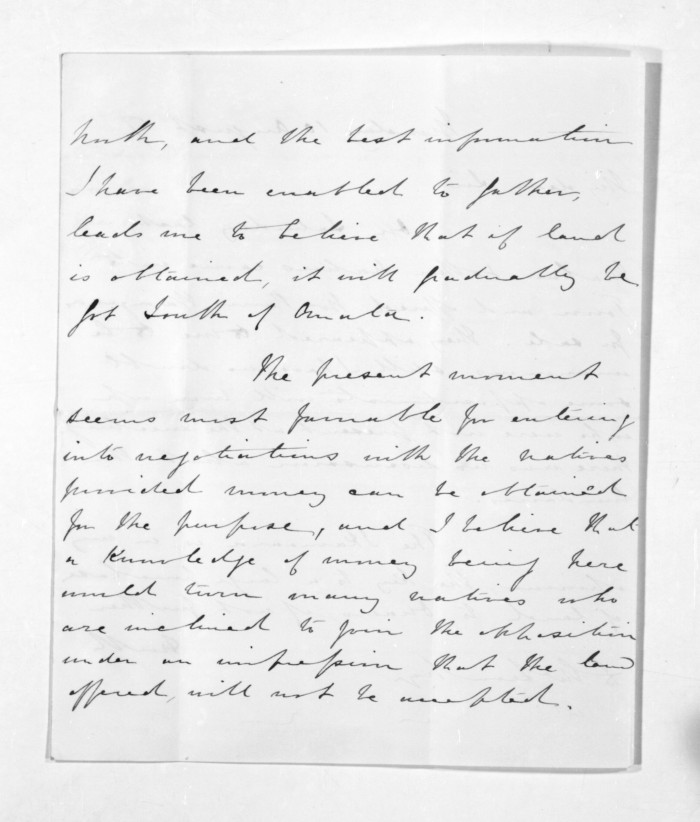 North, and the best information
I have been enabled to gather,
leads me to believe that if land
is obtained, it will gradually be
got South of Omata.
The present moment
seems most favorable for entering
into negotiations with the natives
provided money can be obtained
for the purpose, and I believe that
a knowledge of money being here
would turn many natives who
are inclined to join the opposition
under an impression that the land
offered, will not be accepted.